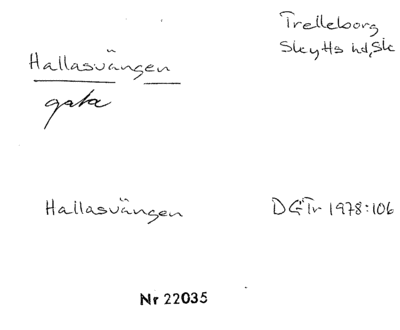 Trelleborg
Skytts hd, Sk
Hallasvängen
gata
Hallasvängen DGTr 1978:106
Nr 22035